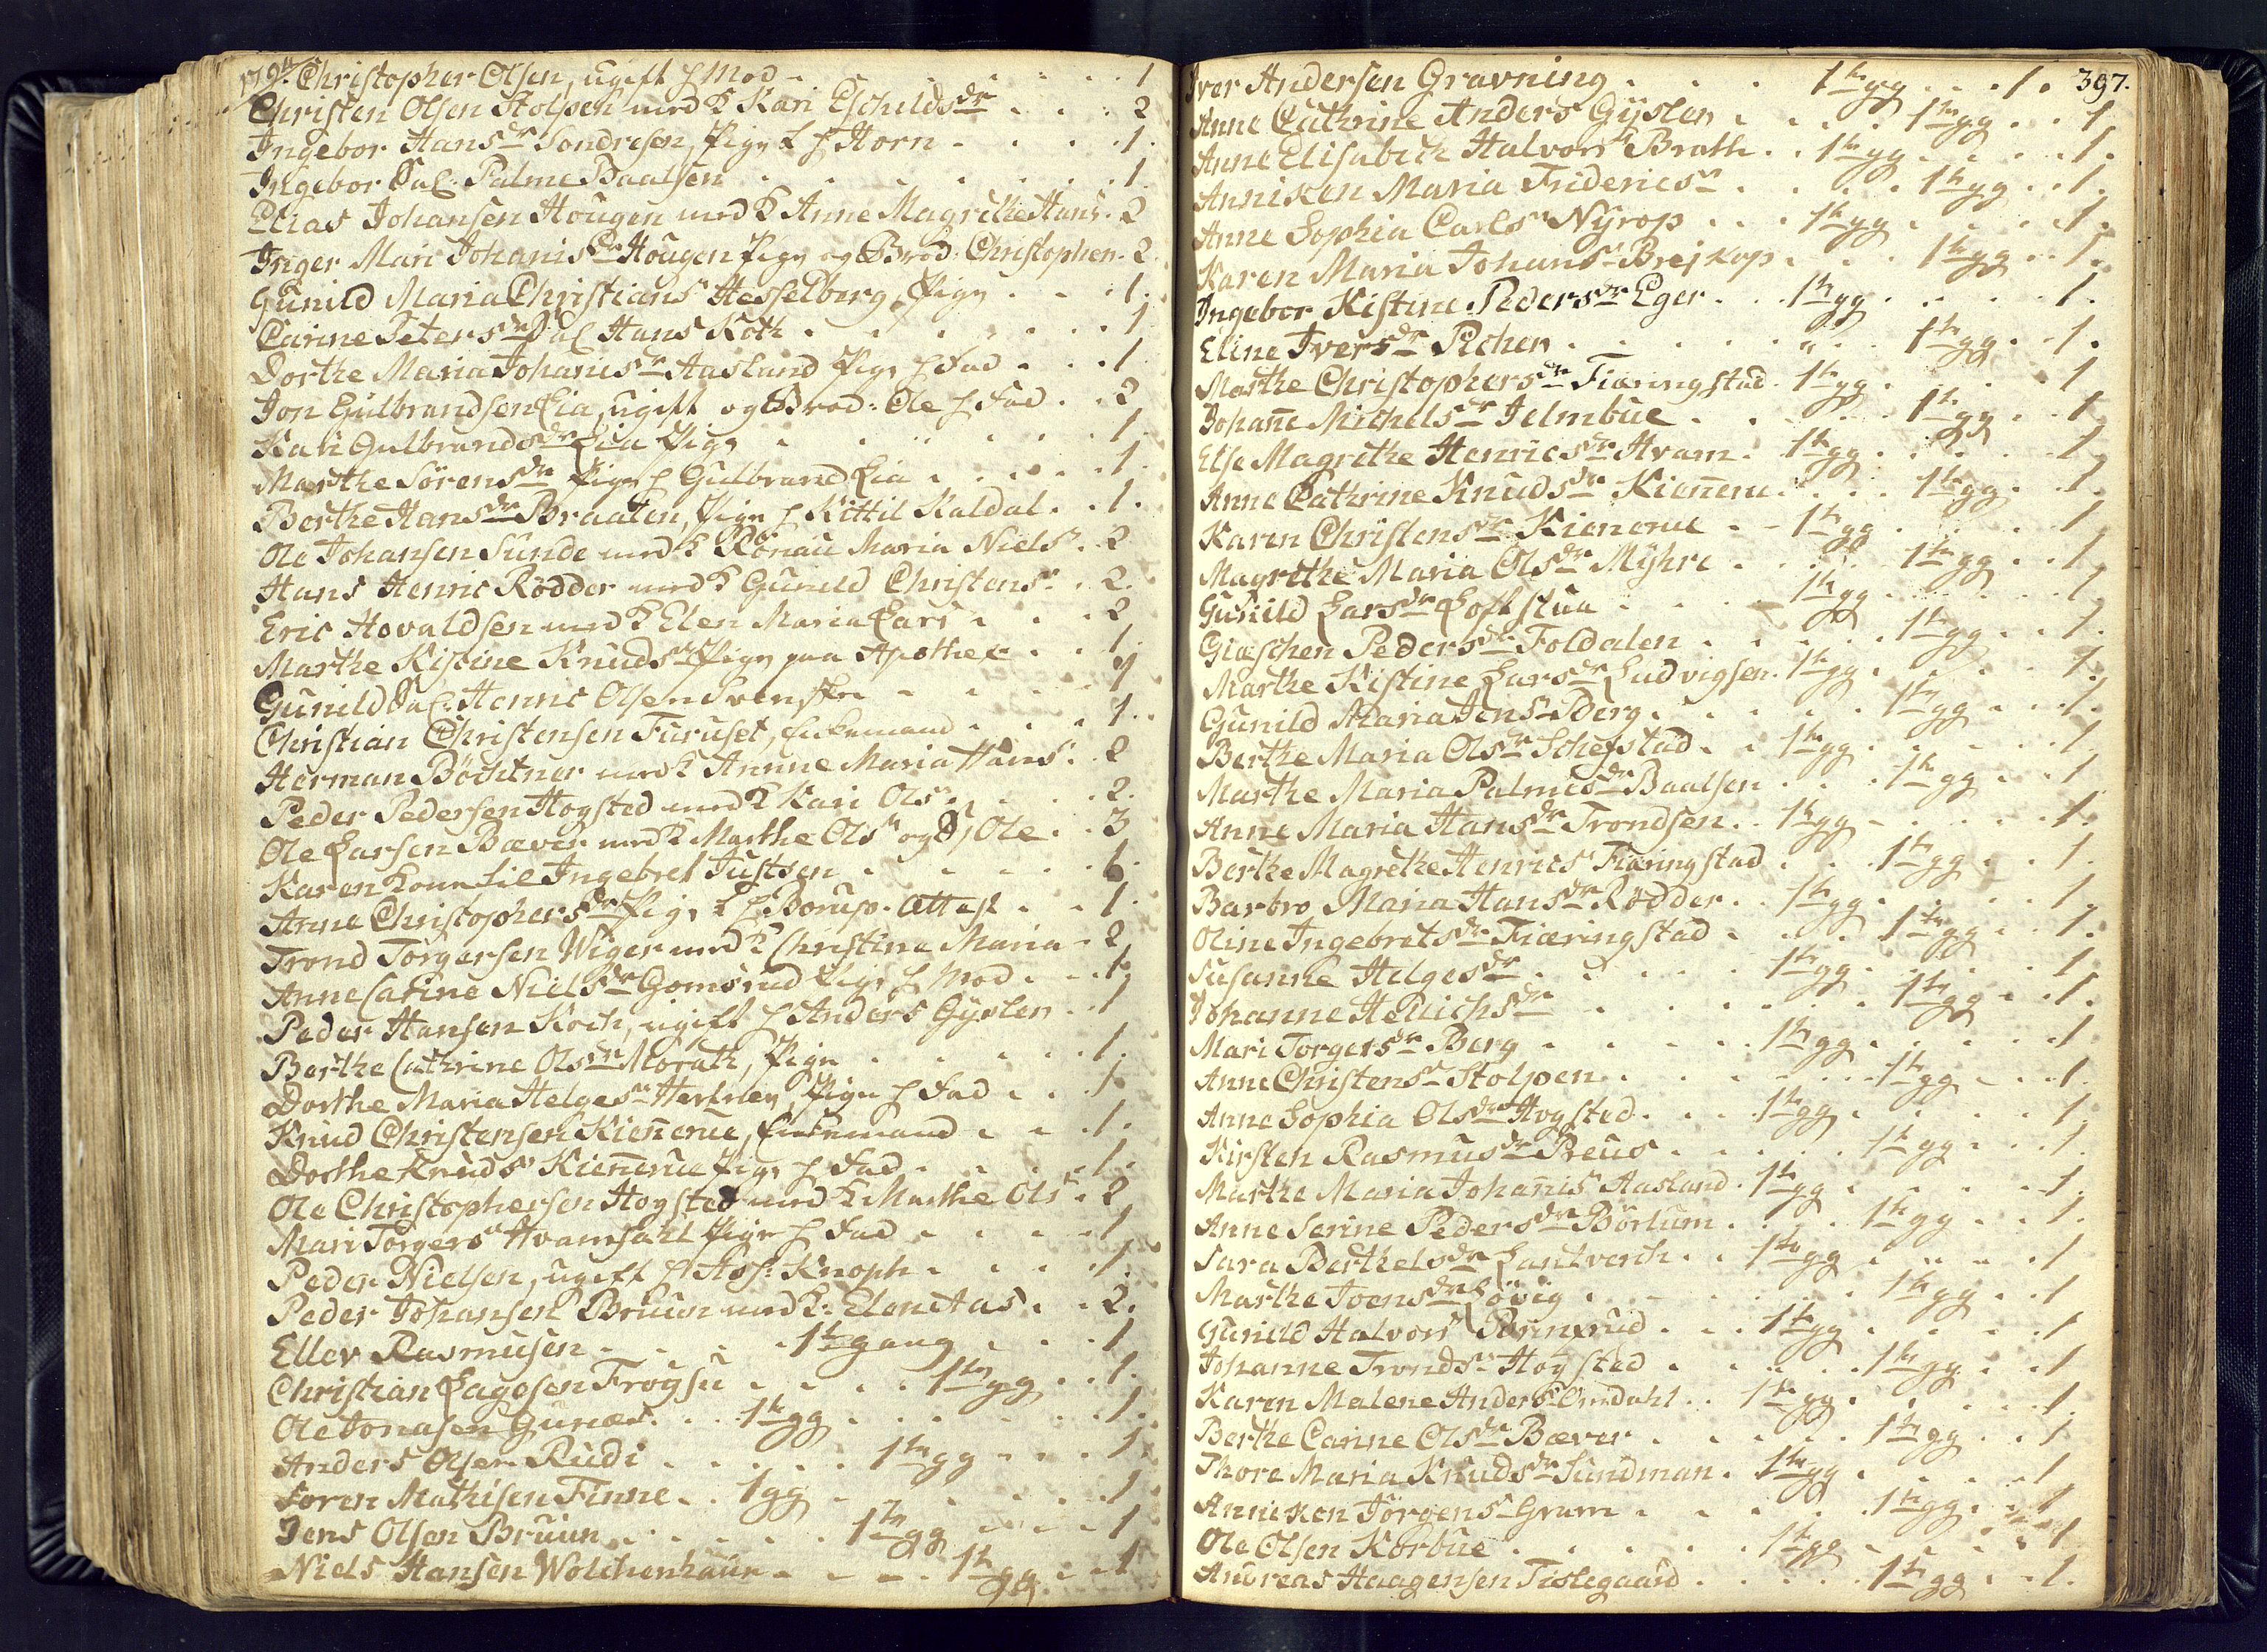 1794. Christopher Olsen, ugift f Mod . . . 1
Christen Olsen Stolpen med K Kari Eschilds dr . . . 2
Ingebor Hans dr Sondresen, Pige L f Horn . . . 1.
Ingebor Sal. Palme Baalsen . . . 1.
Elias Johansen Hougen med K Anne Magrethe Hans . 2
Inger Mari Johanis dr Hougen Pige og Brod: Christopher . 2
Gunild Maria Christians Hesselberg, Pige . . . 1.
Carine Peters dr Sal Hans Koth . . . 1
Dorthe Maria Johanis dr Aasland Pige f Fad . . . 1
Jon Gulbrandsen Lia, ugift og Brod: Ole f Fad . . 2
Kari Gulbrands dr Lia Pige . . . 1.
Marthe Sörens dr Pige f Gulbrand Lia . . . 1.
Berthe Hans dr Braaten, Pige f Kittil Kaldal . . 1.
Ole Johansen Sunde med K Rönau Maria Niels . 2
Hans Henric Rödder med K Gunild Christens . 2.
Eric Hovaldsen med K Elen Maria Lars . . . 2
Marthe Kistine Knuds dr Pige paa Apothek . . 1.
Gunild Sal: Henric Olsen Svenske . . . 1
Christian Christensen Furuset, Enkemand . . . 1.
Herman Böchtner med K Annne Maria Hans . 2
Peder Pedersen Hogsted med K Kari Ols . . . 2.
Ole Larsen Bæver med K Marthe Ols og S Ole . . 3
Karen Kone til Ingebret Justsen . . . 1.
Anne Christophers dr Pige L f Borup. Attest . . 1.
Trond Torgersen Wiger med K Christine Maria . 2
Anne Catrine Niels dr Gomsrud Pige f Mod . . . 1.
Peder Hansen Koch, ugift f Anders Gyslen . . 1
Berthe Cathrine Ols dr Morath, Pige . . . 1.
Dorthe Maria Helges Pige f Fad . . . 1.
Knud Christensen Kiennerue, Enkemand . . . 1.
Dorthe Knuds Kiennerue Pige f Fad . . . 1.
Ole Christophersen Hogsted med K Marthe Ols . 2
Mari Torgers Hvamsahl Pige f Fad . . . 1
Peder Nielsen, ugift f Hos: Knoph . . . 1.
Peder Johansen Bruun med K: Elen Aas . . 2.
Ellev Rasmusen . . . 1te gang . . . 1
Christian Lagesen Frogsu . . . 1te gg . . 1.
Ole Jonasen Gunæs . . 1te gg . . . 1.
Anders Olsen Rudi . . . 1te gg . . . 1
Soren Mathisen Finne . . 1 gg . . . 1
Jens Olsen Bruun . . . 1te gg . . . 1
Niels Hansen Wolchenhaur . . . 1te gg . . 1
397.
Iver Andersen Gravning . . . 1te gg . . . 1.
Anne Cathrine Anders Gyslen . . . 1te gg . . 1
Anne Elisabeth Halvors Brath . . 1te gg . . . 1.
Anniken Maria Friderics . . . 1te gg . . 1.
Anne Sophia Carls Nyrop . . . 1te gg . . . 1.
Karen Maria Johans Brejkop . . . 1te gg . . 1.
Ingebor Kistine Peders dr Eger . . . 1te gg . . . 1.
Eline Ivers dr Picher . . . 1te gg . . 1.
Marthe Christophers dr Fiæringstad . 1te gg . . . 1
Johane Michels dr Jelmbue . . . 1te gg . . 1
Else Magrethe Henrics dr Hvam . 1te gg . . . 1.
Anne Cathrine Knuds dr Kiennerue . . . 1te gg . . 1.
Karen Christens dr Kienerue . . 1te gg . . . 1
Magrethe Maria Ols dr Myhre . . . 1te gg . . 1.
Gunild Lars dr Loftstua . . . 1te gg . . . 1.
Giæschen Peders dr Foldalen . . . 1te gg . . 1.
Marthe Kistine Lars dr Ludvigsen . 1te gg . . . 1.
Gunild Maria Jens Berg . . . 1te gg . . . 1.
Berthe Maria Ols dr Schefstad . . 1te gg . . . 1
Marthe Maria Palmes dr Baalsen . . . 1te gg . . 1
Anne Maria Hans dr Trondsen . . 1te gg . . . 1.
Berthe Magrethe Henrics Fiæringstad . . . 1te gg . . 1.
Barbro Maria Hans dr Rödder . . 1te gg . . . 1.
Oline Ingebrets dr Fiæringstad . . . 1te gg . . 1.
Susanne Helges dr . . . 1te gg . . . 1.
Johanne Hellichs dr . . . 1te gg . . 1.
Mari Torgers dr Berg . . . 1te gg . . . 1
Anne Christens Stolpen . . . 1te gg . . 1.
Anne Sophia Ols dr Hogsted . . . 1te gg . . . 1
Kirsten Rasmus dr Preus . . . 1te gg . . . 1.
Marthe Maria Johannis Aasland . 1te gg . . . 1.
Anne Serine Peders dr Börtum . . . 1te gg . . 1.
Sara Berthels dr Lantverch . . 1te gg . . . 1
Marthe Ivens dr Lövig . . . 1te gg . . 1
Gunild Halvors . . . 1te gg . . . 1
Johanne Tronds Hogsted . . . 1te gg . . 1
Karen Malene Anders Omdahl . . 1te gg . . . 1.
Berthe Carine Ols dr Bæver . . . 1te gg . . 1
Thore Maria Knuds dr Sundman . 1te gg . . . 1
Anneken Jörgens Gram . . . 1te gg . . 1
Ole Olsen Korbue . . . 1te gg . . . 1
Andreas Haagensen Tislegaard . . . 1te gg . . 1.